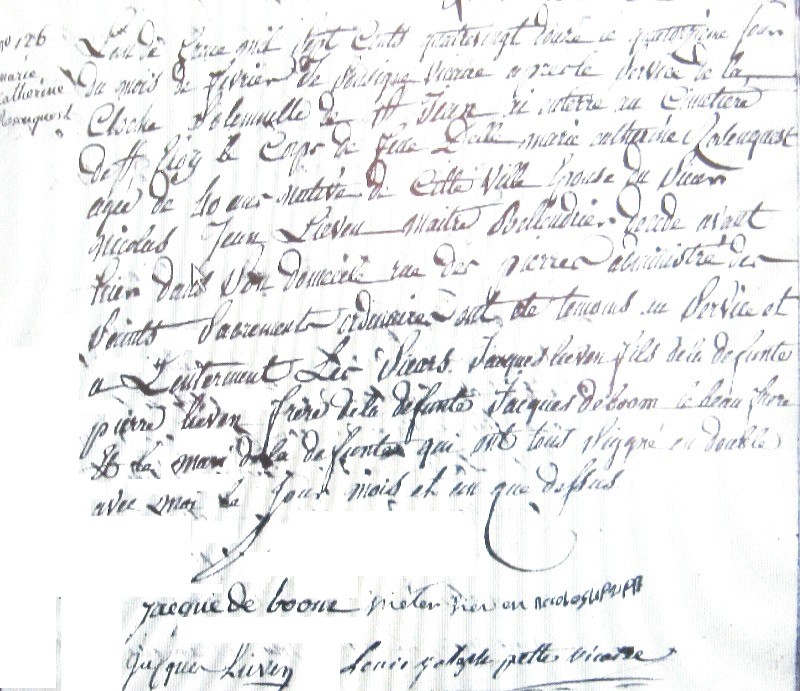 No 126
marie
Catherine
Rosenquest
L'an de Grace mil sept cents quatrevingt douze le quatorzieme jour
du mois de fevrier je soussigné vicaire apres le service de la
Cloche Solemnelle de St Jean ai enterré au Cimetiere
de St Eloy le Corps de feue Delle marie catherine Rosenquest
agée de 40 ans native de Cette Ville Epouse du Sieur
nicolas Jean Lieven maitre decedée avant
hier dans son domicile rue des pierres administrée des
Saints Sacrements ordinaires ont été temoins au Service et
a L'enterrement Les Sieurs Jacques lieven fils de la defunte
pierre lieven frere de la defunte Jacques de boom le beau frere
et le mari de la defunte qui ont tous signé en double
avec moi le Jour mois et an que dessus
Jacque de boom pieter
Jacques Lieven Louis petter vicaire